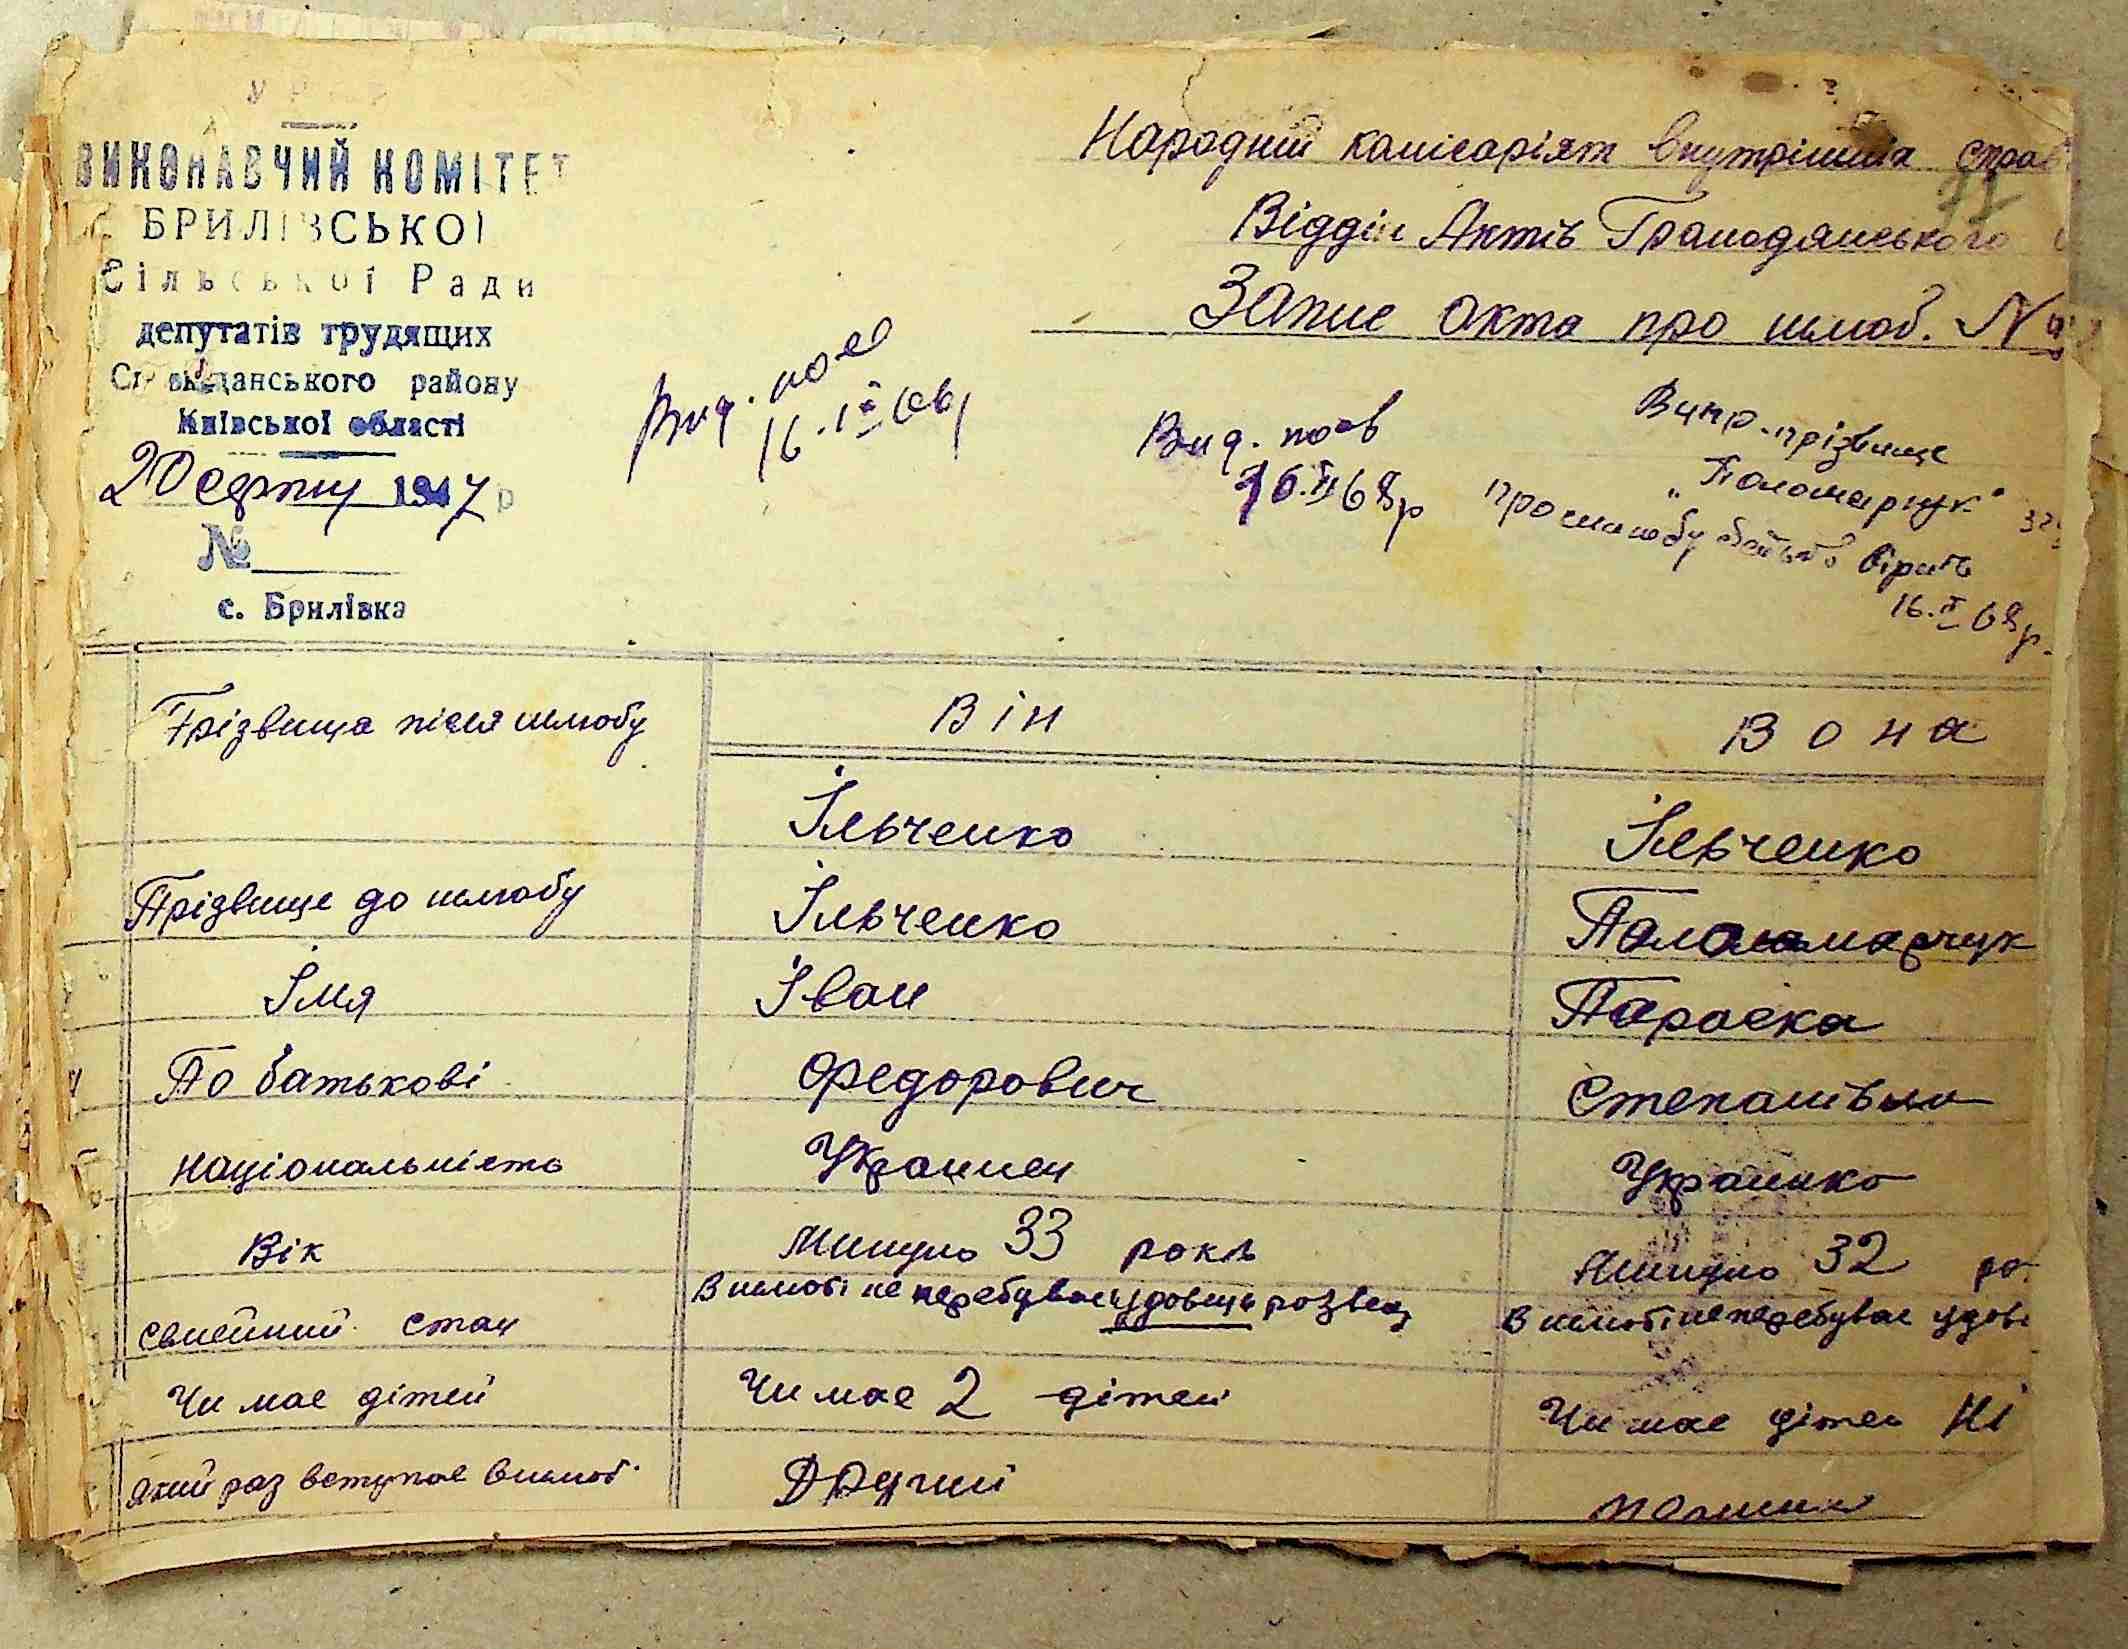 УРСР
ВИКОНАВЧИЙ КОМІТЕТ
БРИЛІВСЬКОІ
Сільської Ради
депутатів трудящих
району
Київської області
20 серпня 1947 р
№
с. Брилівка
Народний комісаріят внутрішніх справ
Відділ Актів Грамодянського
Запис акта про шлюб. №
Вид. пов
16.
Вид. пов
16.II 68р
Випр. прізвище
"Паламарчук"
про шлюбу вірить
16.II 68р.
Прізвища після шлюбу
Він
Вона
Ільченко
Ільченко
Прізвище до шлюбу
Ільченко
Паламарчук
Імя
Іван
Параска
По батькові
Федорович
Степанівна
Національність
Українец
Українко
Вік
Минуло 33 років
Минуло 32 ро
Сімейний стан
В шлюбі не перебуває удовець розвед
В шлюбі не перебуває удов
Чи має дітей
Чи має 2 дітей
Чи має дітей Ні
який раз вступає в шлюб
Другий